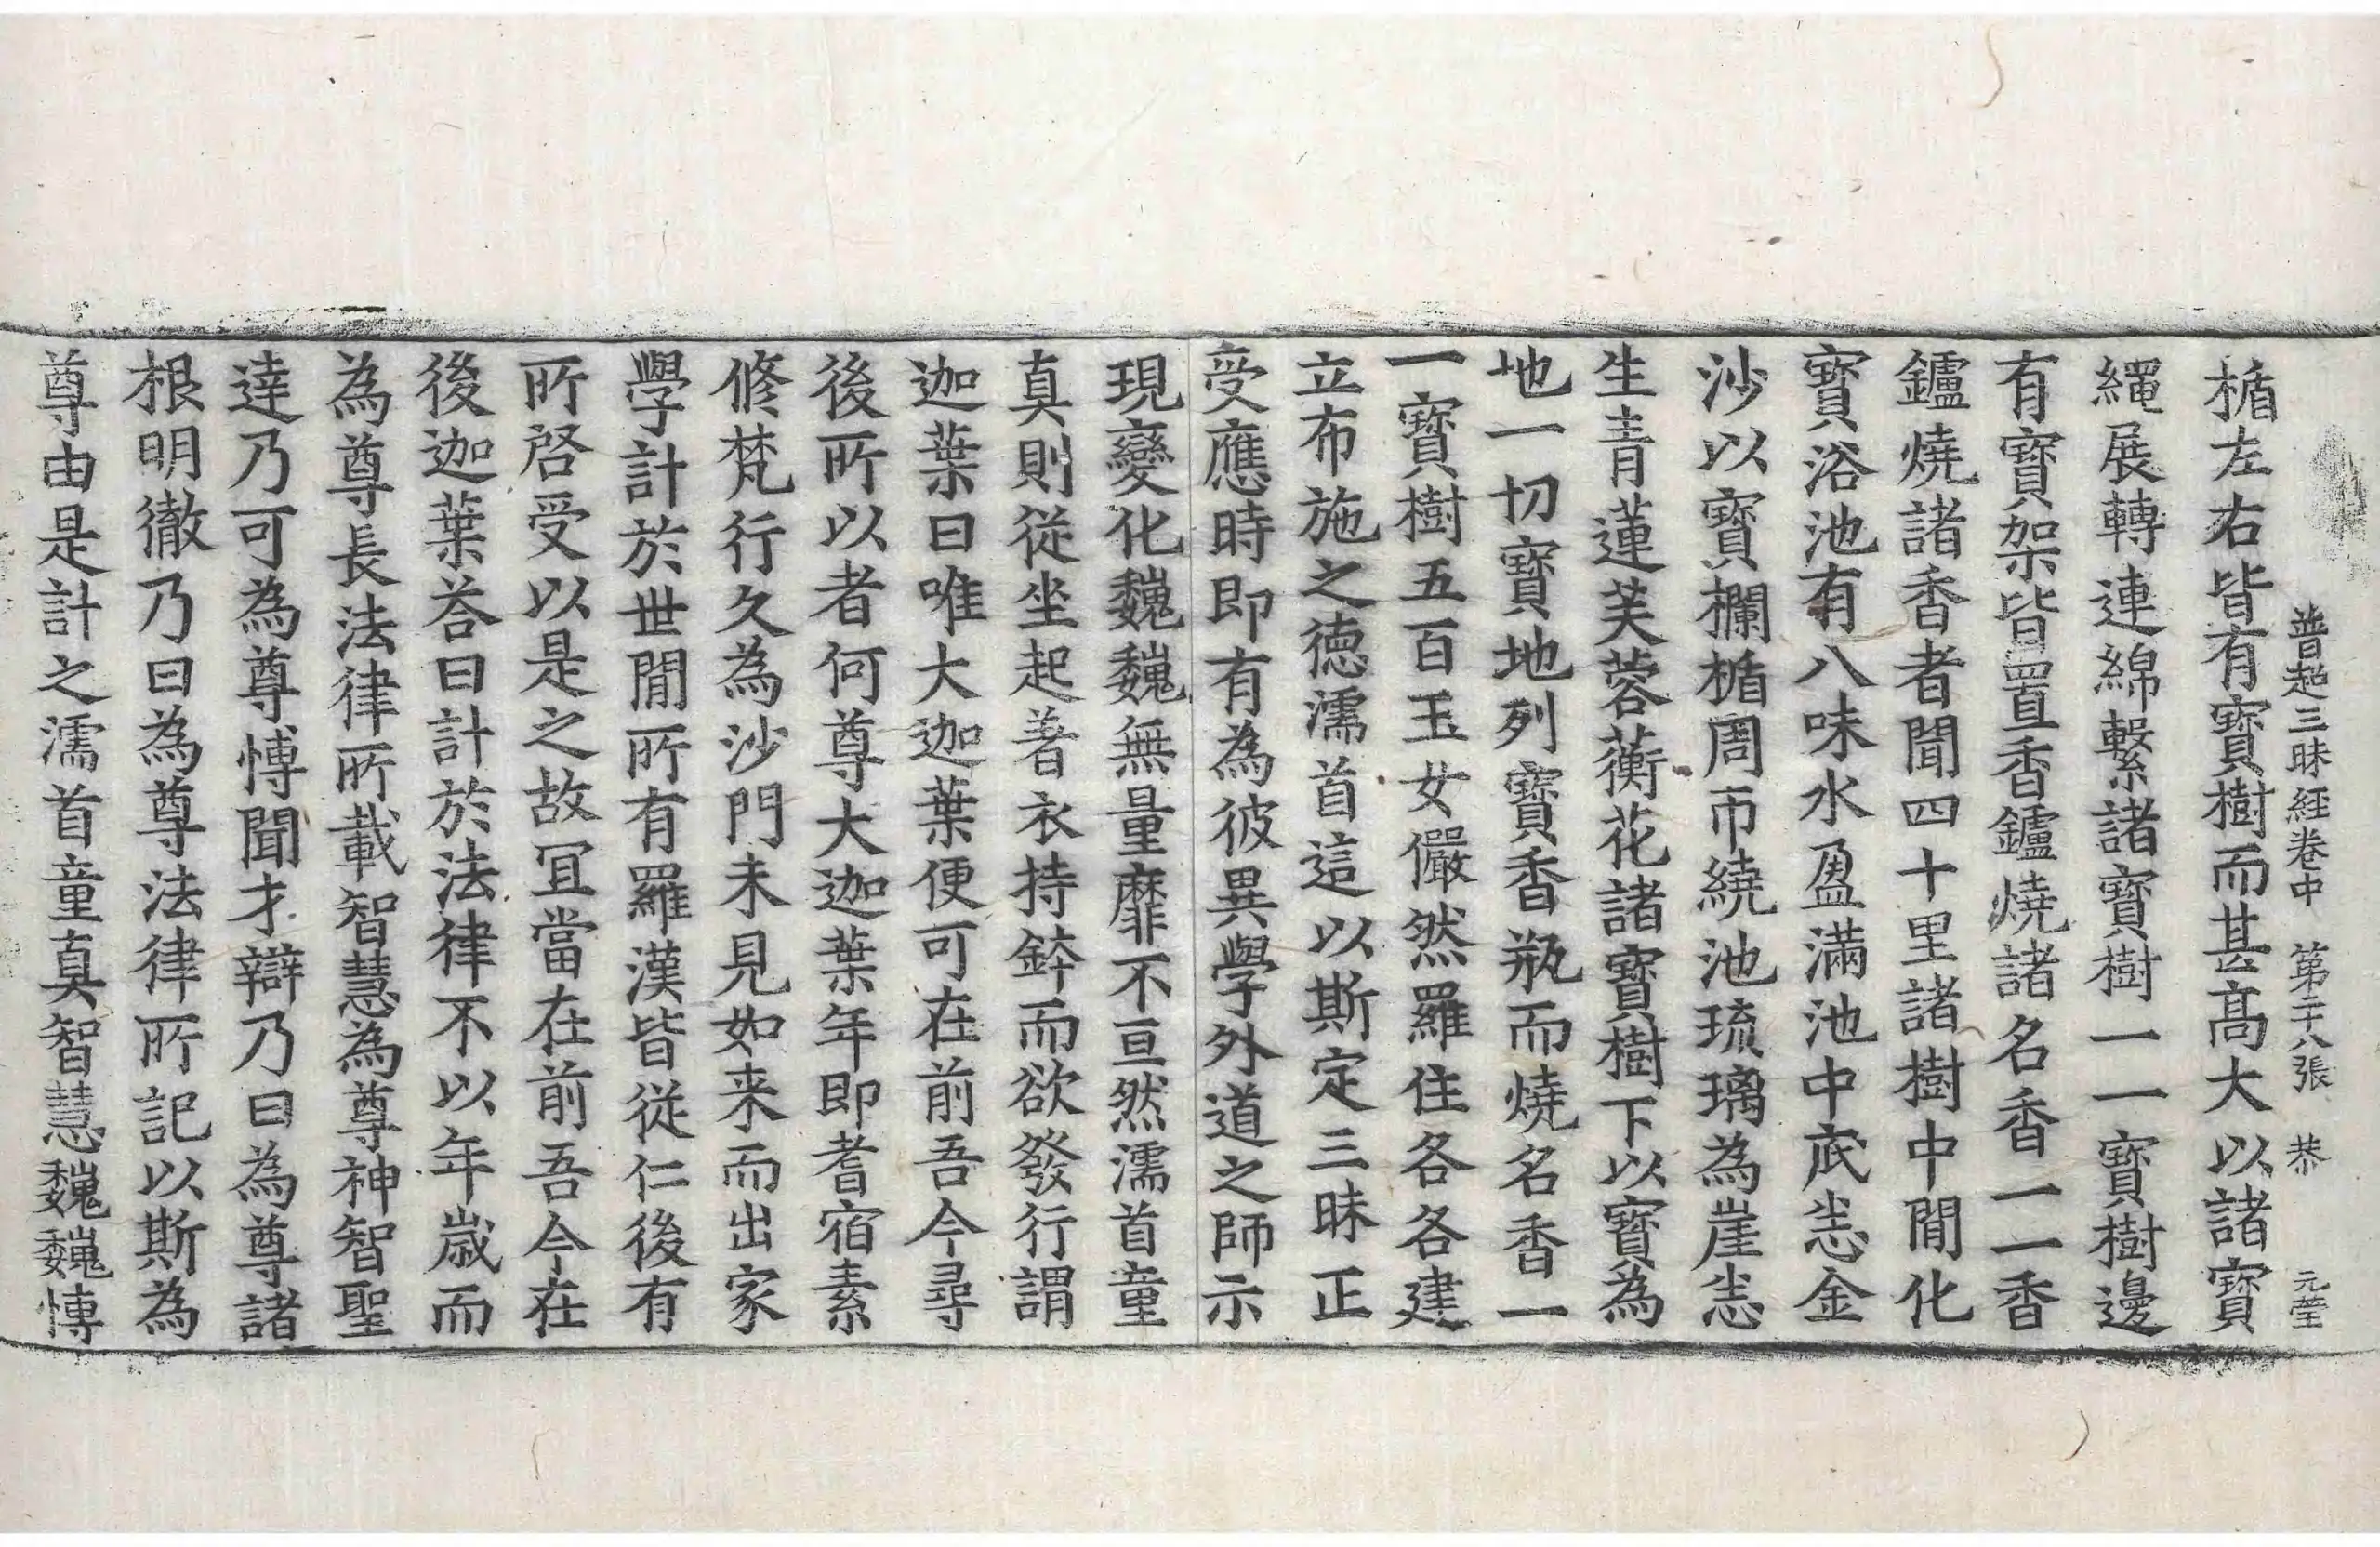 普超三昧経巻中　第二十八張　恭　元瑩
楯左右皆有寳樹而甚髙大以諸寳
繩展轉連綿繫諸寳樹一一寳樹邊
有寳架皆置香鑪燒諸名香一一香
鑪燒諸香者聞四十里諸樹中閒化
寳浴池有八味水盈滿池中底悉金
沙以寳欄楯周帀繞池琉璃為崖悉
生青蓮芙蓉蘅花諸寳樹下以寳為
地一切寳地列寳香瓶而燒名香一
一寳樹五百玉女儼然羅住各各建
立布施之德濡首這以斯定三昧正
受應時即有為彼異學外道之師示
現變化巍巍無量靡不亘然濡首童
真則從坐起著衣持鉢而欲發行謂
迦葉曰唯大迦葉便可在前吾今尋
後所以者何尊大迦葉年即耆宿素
修梵行久為沙門未見如来而出家
學計於世閒所有羅漢皆從仁後有
所啓受以是之故冝當在前吾今在
後迦葉荅曰計於法律不以年歲而
為尊長法律所載智慧為尊神智聖
達乃可為尊博聞才辯乃曰為尊諸
根明徹乃曰為尊法律所記以斯為
尊由是計之濡首童真智慧巍巍博